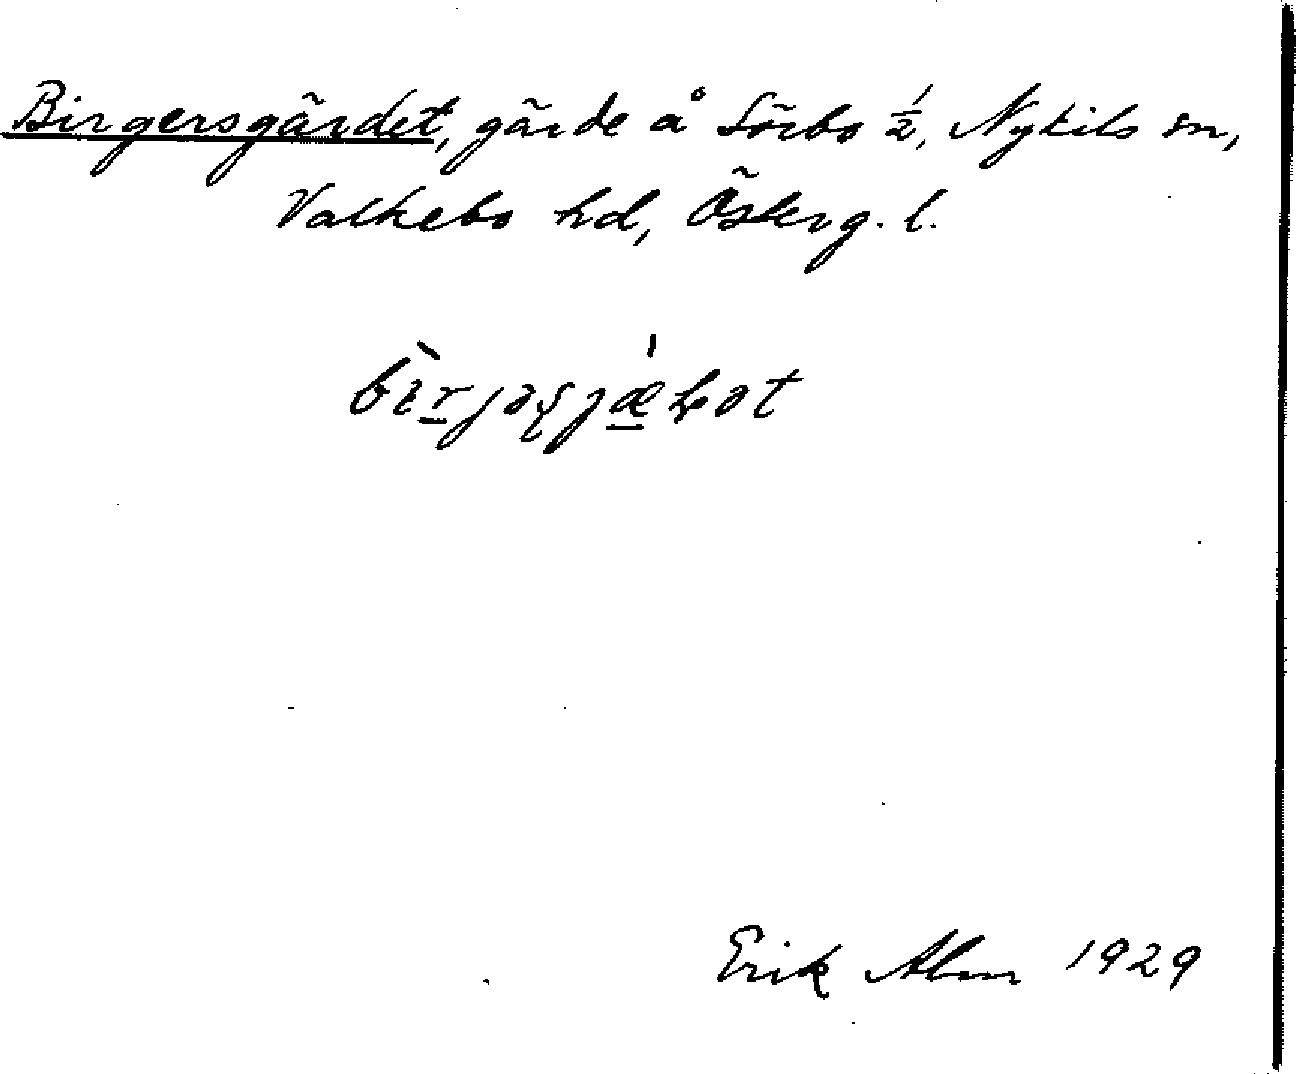 Birgersgärdet, gärde å Sörbo ½, Nykils sn,
Valkebo hd, Österg. l.
Erik Alm 1929